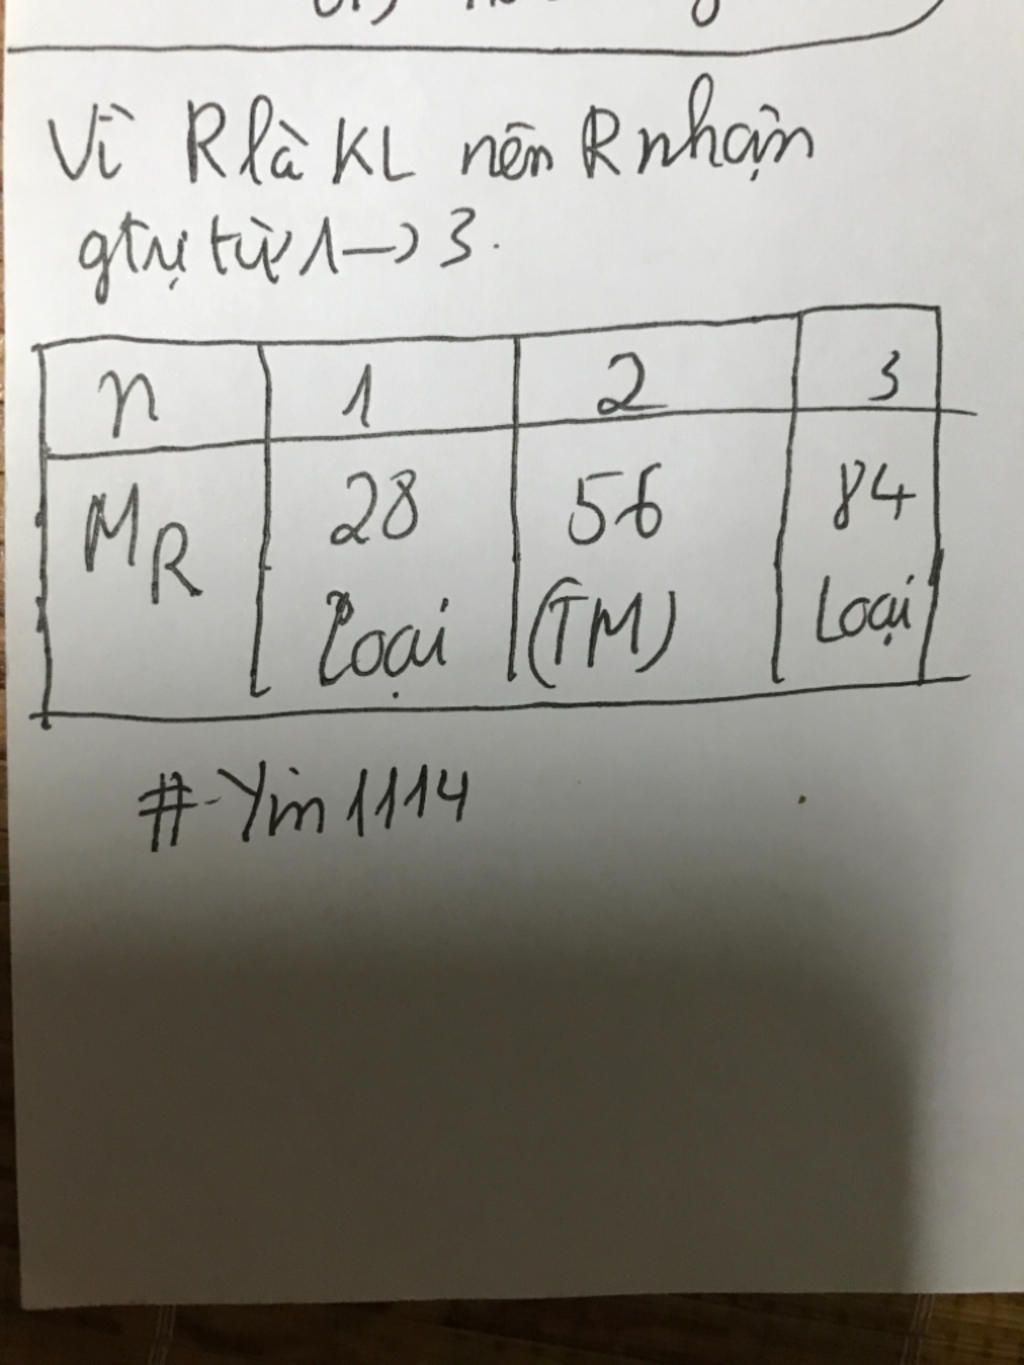 Vì R là KL nên R nhận
gtrị từ 1 → 3.
n 1 2 3
MR 28 56 84
Loại (TM) Loại
#-Yin1114